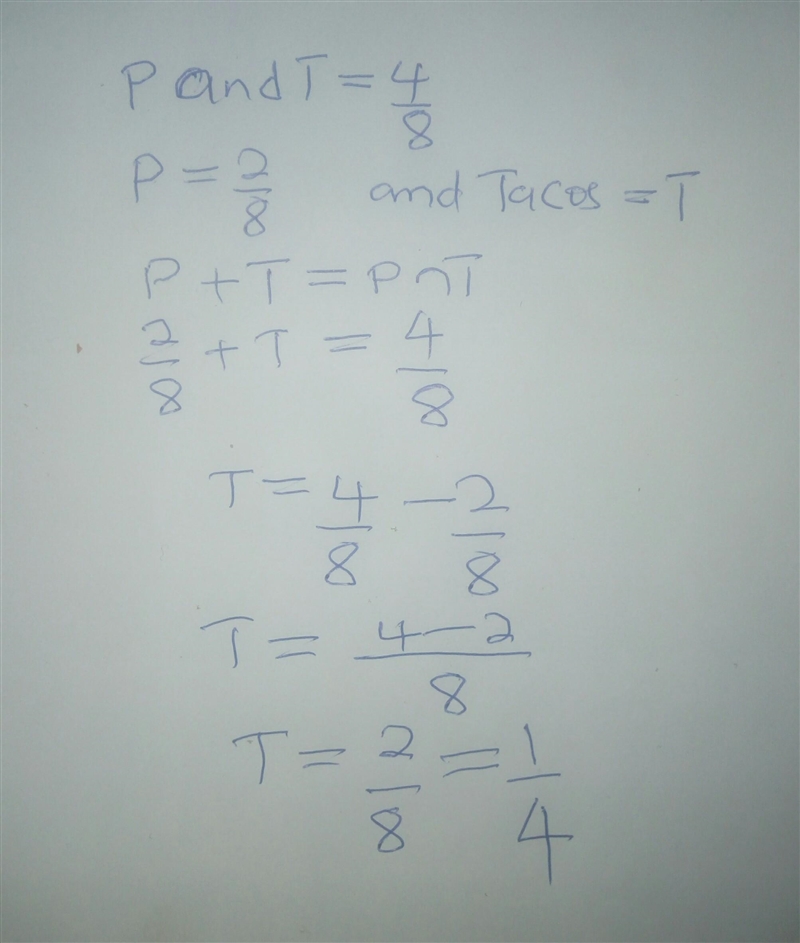 P and T = 4/8
P = 2/8 and Tacos = T
P + T = P ∩ T
2/8 + T = 4/8
T = 4/8 - 2/8
T = 4-2/8
T = 2/8 = 1/4